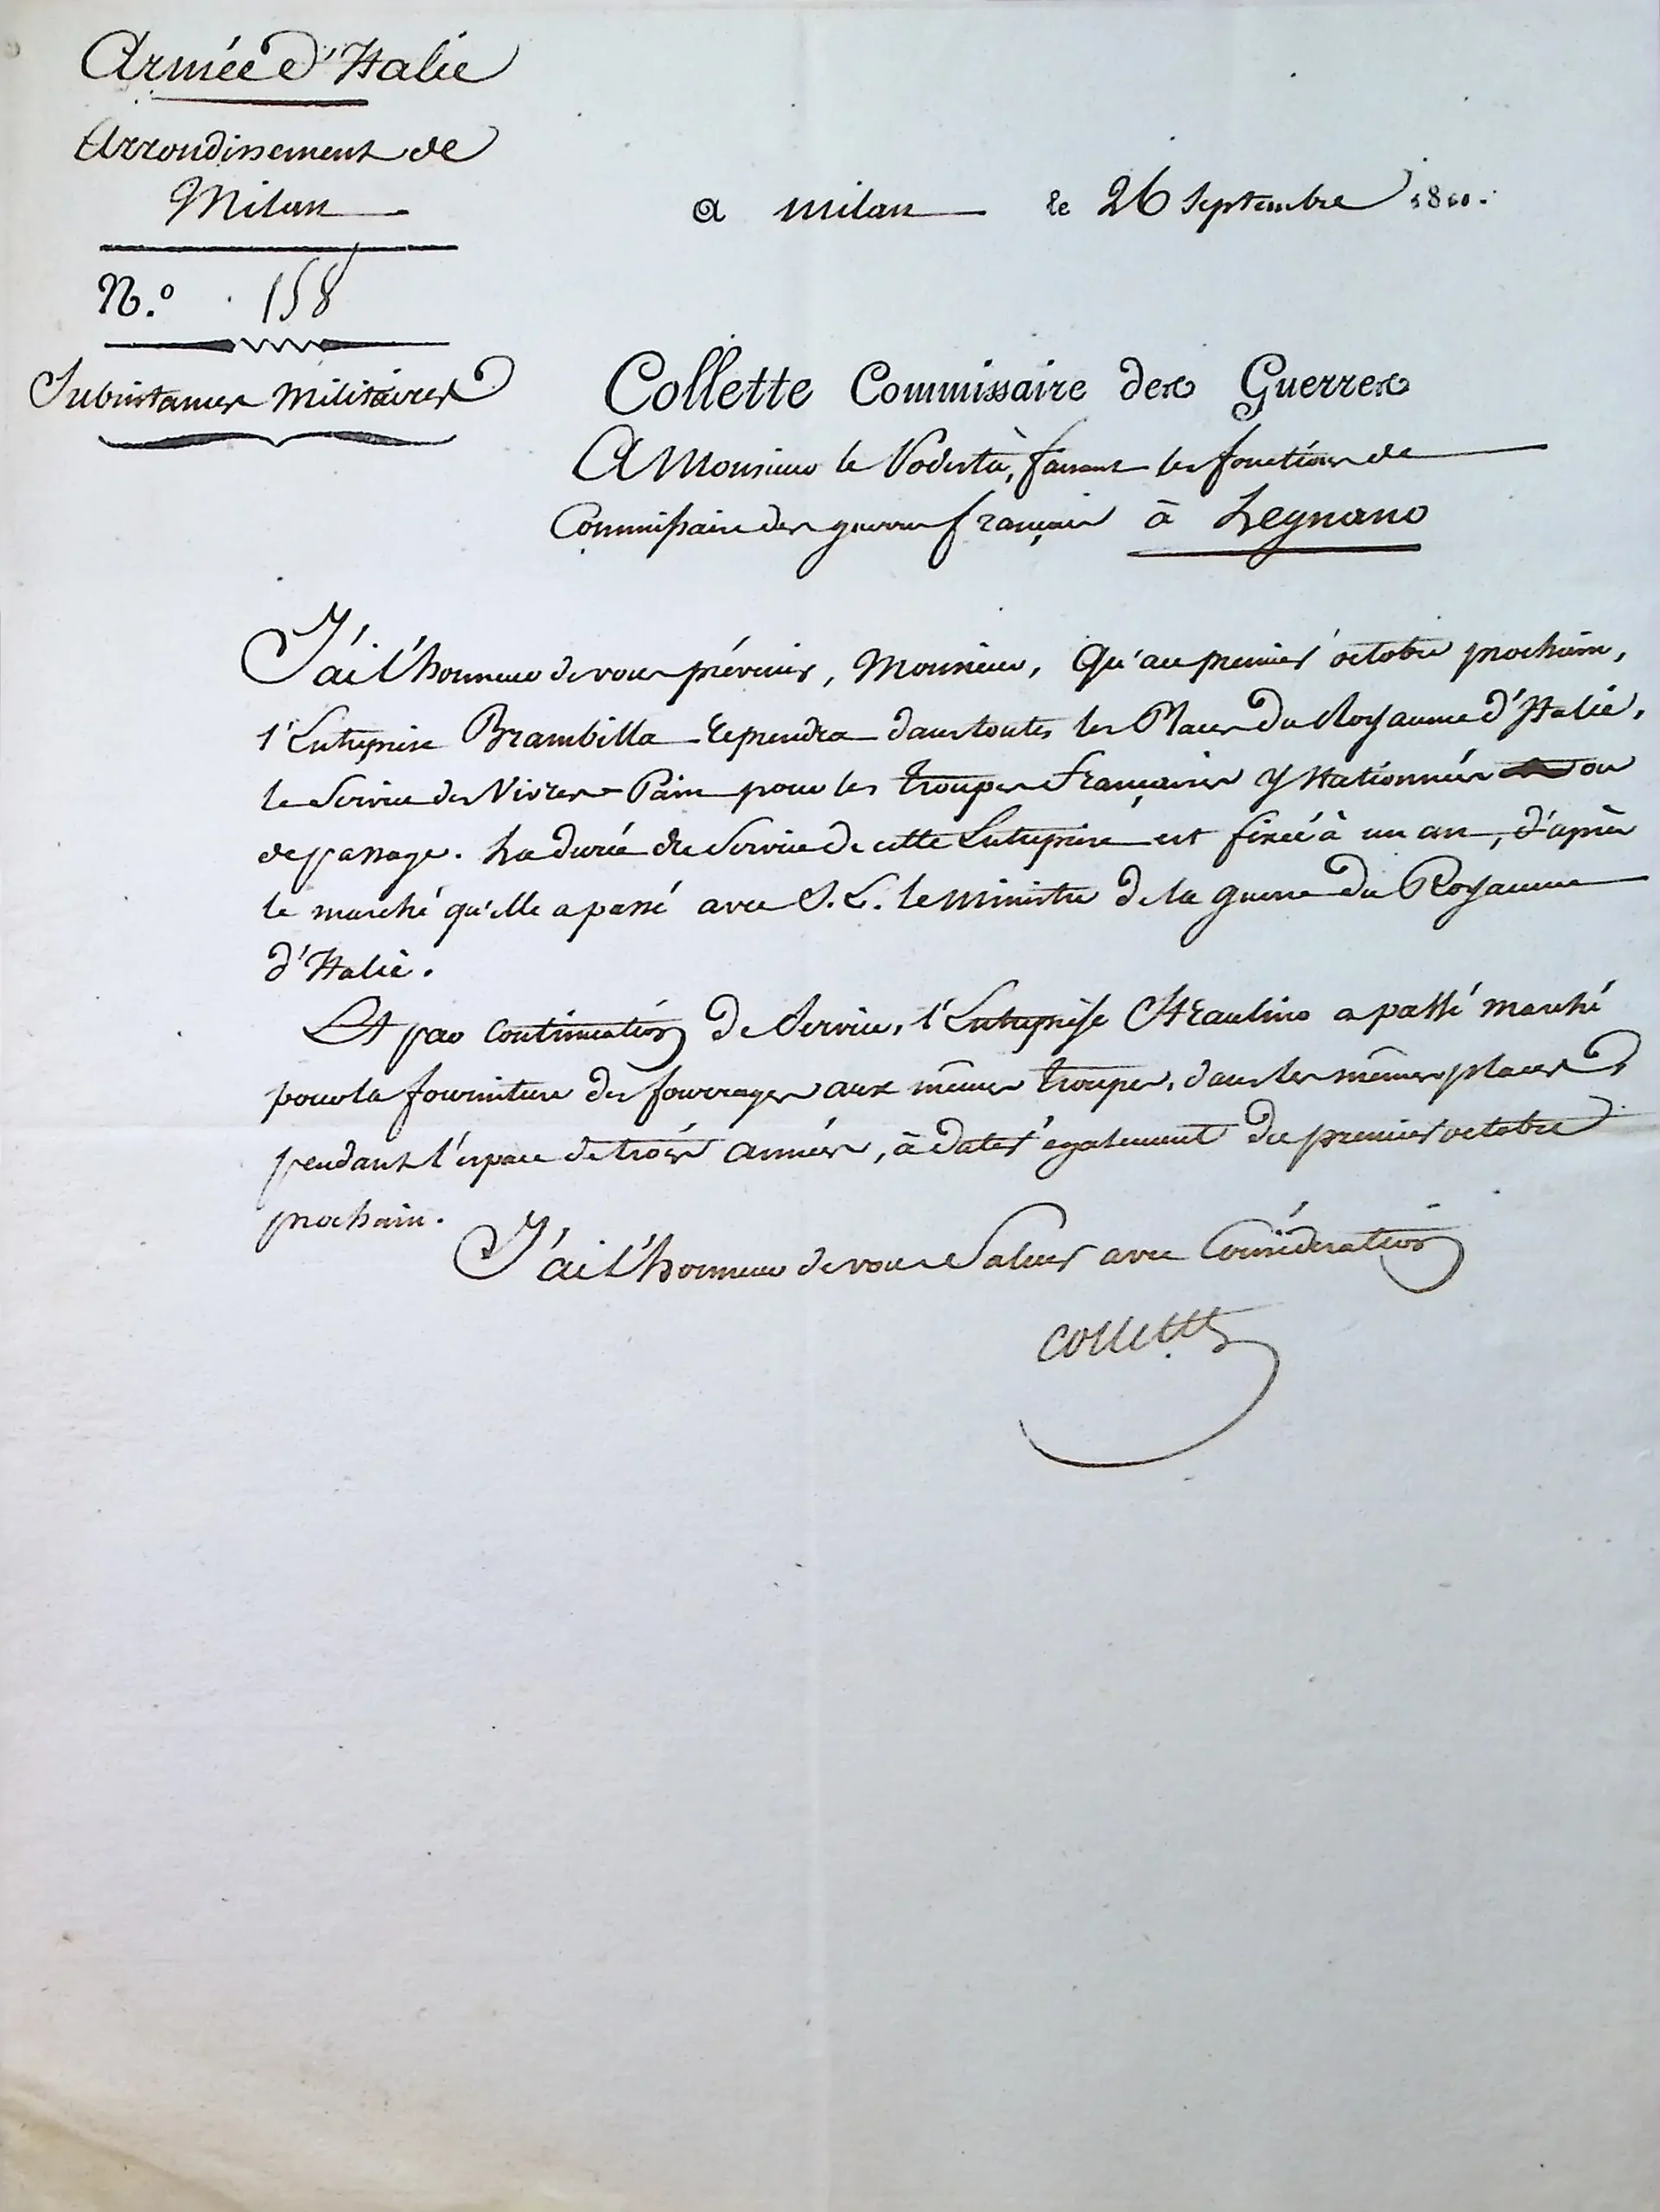 Armée d'Italie
Arrondissement de
Milan
a milan le 26 Septembre 1810.
N.º 158
Subsistances Militaires
Collette Commissaire des Guerres
A Monsieur le Podestà, faisant les fonctions de
Commissaire des guerres français à Legnano
J'ai l'honneur de vous prévenir, Monsieur, Qu'au premier octobre prochain,
l'Entreprise Brambilla reprendra dans toutes les Places du Royaume d'Italie,
le Service des Vivres-Pain pour les troupes françaises y stationnées ou
de passage. La durée du Service de cette Entreprise est fixée à un an, d'après
le marché qu'elle a passé avec S.E. le Ministre de la guerre du Royaume
d'Italie.
Et par continuation de Service, l'Entreprise a passé marché
pour la fourniture des fourrages aux mêmes troupes, dans les mêmes places,
pendant l'espace de trois années, à dater également du premier octobre
prochain.
J'ai l'honneur de vous Saluer avec Considération
Collette